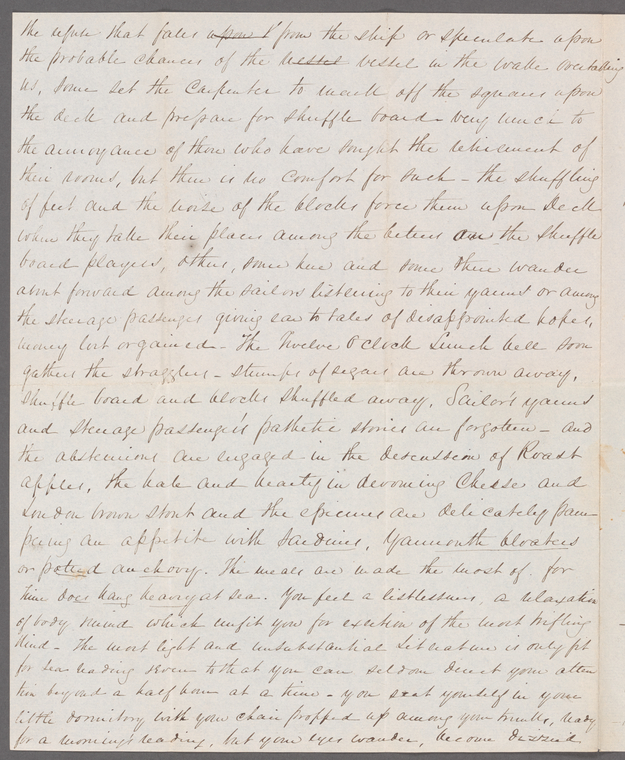 the refuse that falls upon & from the ship or speculate upon
the probable chances of the vessel vessel in the wake overtaking
us, some set the Carpenter to mark off the squares upon
the deck and prepare for shuffle board - very much to
the annoyance of those who have sought the retirement of
their rooms, but there is no comfort for such - the shuffling
of feet and the noise of the blocks force them upon Deck
when they take their places among the betters on the shuffle
board players, others, some here and some there wander
about forward among the sailors listening to their yarns or among
the steerage passengers giving ear to tales of disappointed hopes,
money lost or gained - The Twelve O'clock Lunch bell soon
gathers the stragglers - stumps of segars are thrown away,
shuffle board and blocks shuffled away, Sailor's yarns
and steerage passenge's pathetic stories are forgotten - and
the abstemious are engaged in the descussion of Roast
apples, the hale and hearty in devouring Chesse and
London brown stout and the epicures are delicately pam-
pering an appetite with Sardines, Yarmouth bloaters
or potted anchovy. The meals are made the most of for
time does hang heavy at sea. You feel a listlessness, a relaxation
of body, mind which unfit you for exertion of the most trifling
kind - The most light and unsubstantial Literature is only fit
for sea reading & even to that you can seldom direct your atten
tion beyond a half hour at a time - you seat yourself in your
little dormitory with your chair propped up among your trunks, ready
for a morning's reading, but your eyes wander, become dizzied